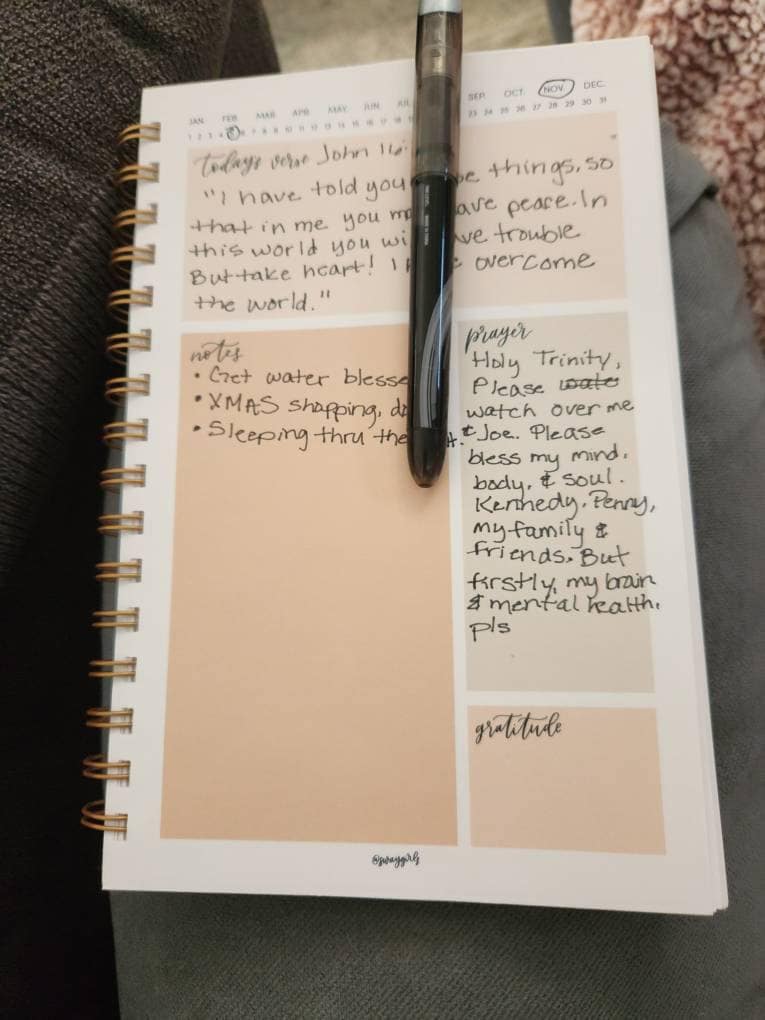 JAN. FEB. MAR. APR. MAY. JUN. SEP. OCT. NOV. DEC.
1 2 3 4 5 6 7 8 9 10 11 12 13 14 15 16 17 18 23 24 25 26 27 28 29 30 31
todays verse John 16:
"I have told you things, so
that in me you ave peace. In
this world you wi ve trouble
But take heart! I overcome
the world."
notes
• Get water blesse
• XMAS shopping,
• Sleeping thru the
prayer
Holy Trinity,
Please
watch over me
& Joe. Please
bless my mind,
body, & soul.
Kennedy, Penny,
my family &
friends. But
firstly, my brain
& mental health.
pls
gratitude
@swaygirls